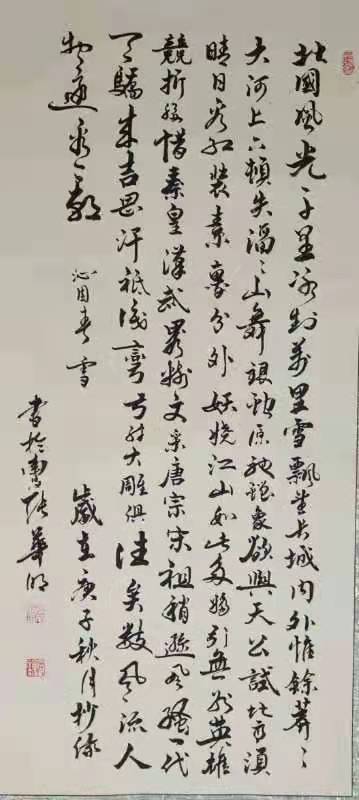 北國風光千里冰封萬里雪飄望長城内外惟餘莽〻
大河上下頓失滔〻山舞銀蛇原馳蠟象欲與天公試比高須
晴日看紅裝素裹分外妖嬈江山如此多嬌引無數英雄
競折腰惜秦皇漢武畧輸文采唐宗宋祖稍遜風騷一代
天驕成吉思汗祇識彎弓射大雕俱往矣數風流人
物還看今朝
沁园春雪
歲在庚子秋月抄錄
書於 華明